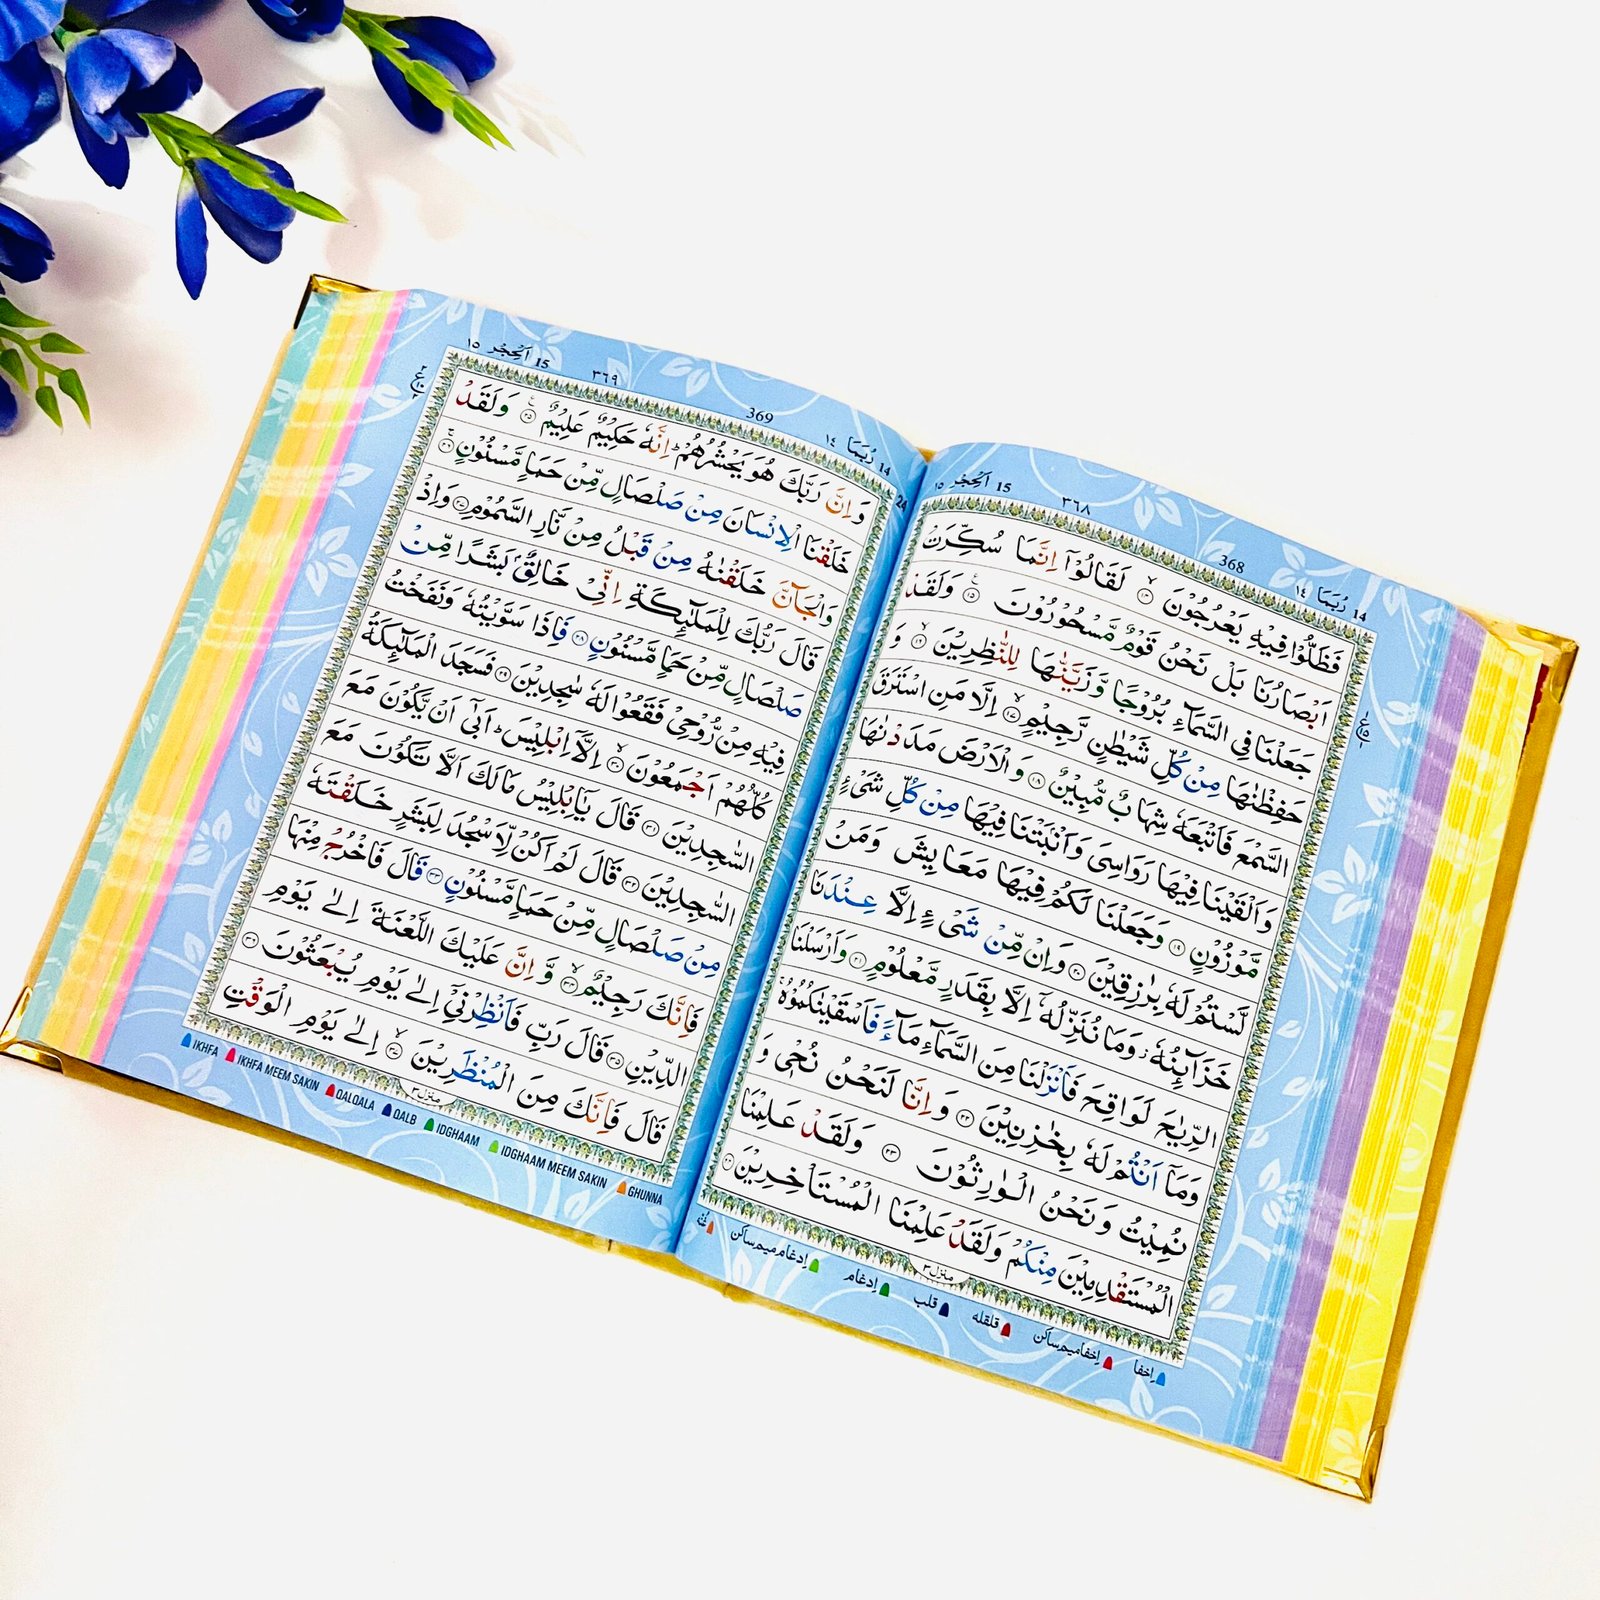 15 اَلْحِجْر ١٥
٣٦٨
368
14 رُبَمَا ١٤
فَظَلُّوْا فِيْهِ يَعْرُجُوْنَ ۙ﴿۱۴﴾ لَقَالُوْۤا اِنَّمَا سُكِّرَتْ
اَبْصَارُنَا بَلْ نَحْنُ قَوْمٌ مَّسْحُوْرُوْنَ ﴿۱۵﴾ وَلَقَدْ
جَعَلْنَا فِي السَّمَآءِ بُرُوْجًا وَّزَيَّنّٰهَا لِلنّٰظِرِيْنَ ۙ﴿۱۶﴾ وَ
حَفِظْنٰهَا مِنْ كُلِّ شَيْطٰنٍ رَّجِيْمٍ ۙ﴿۱۷﴾ اِلَّا مَنِ اسْتَرَقَ
السَّمْعَ فَاَتْبَعَهٗ شِهَابٌ مُّبِيْنٌ ﴿۱۸﴾ وَالْاَرْضَ مَدَدْنٰهَا
وَاَلْقَيْنَا فِيْهَا رَوَاسِيَ وَاَنْۢبَتْنَا فِيْهَا مِنْ كُلِّ شَيْءٍ
مَّوْزُوْنٍ ﴿۱۹﴾ وَجَعَلْنَا لَكُمْ فِيْهَا مَعَايِشَ وَمَنْ
لَّسْتُمْ لَهٗ بِرٰزِقِيْنَ ﴿۲۰﴾ وَاِنْ مِّنْ شَيْءٍ اِلَّا عِنْدَنَا
خَزَآئِنُهٗ ؗ وَمَا نُنَزِّلُهٗۤ اِلَّا بِقَدَرٍ مَّعْلُوْمٍ ﴿۲۱﴾ وَاَرْسَلْنَا
الرِّيٰحَ لَوَاقِحَ فَاَنْزَلْنَا مِنَ السَّمَآءِ مَآءً فَاَسْقَيْنٰكُمُوْهُ ۚ
وَمَاۤ اَنْتُمْ لَهٗ بِخٰزِنِيْنَ ﴿۲۲﴾ وَاِنَّا لَنَحْنُ نُحْيٖ وَ
نُمِيْتُ وَنَحْنُ الْوٰرِثُوْنَ ﴿۲۳﴾ وَلَقَدْ عَلِمْنَا
الْمُسْتَقْدِمِيْنَ مِنْكُمْ وَلَقَدْ عَلِمْنَا الْمُسْتَاْخِرِيْنَ ﴿۲۴﴾
منزل ٣
اِخفا
اِخفا میم ساکن
قلقله
قلب
اِدغام
اِدغام میم ساکن
غُنّه
15 اَلْحِجْر ١٥
٣٦٩
369
14 رُبَمَا ١٤
24
وَاِنَّ رَبَّكَ هُوَ يَحْشُرُهُمْ ؕ اِنَّهٗ حَكِيْمٌ عَلِيْمٌ ﴿۲۵﴾ وَلَقَدْ
خَلَقْنَا الْاِنْسَانَ مِنْ صَلْصَالٍ مِّنْ حَمَاٍ مَّسْنُوْنٍ ﴿۲۶﴾
وَالْجَآنَّ خَلَقْنٰهُ مِنْ قَبْلُ مِنْ نَّارِ السَّمُوْمِ ﴿۲۷﴾ وَاِذْ
قَالَ رَبُّكَ لِلْمَلٰٓئِكَةِ اِنِّيْ خَالِقٌۢ بَشَرًا مِّنْ
صَلْصَالٍ مِّنْ حَمَاٍ مَّسْنُوْنٍ ﴿۲۸﴾ فَاِذَا سَوَّيْتُهٗ وَنَفَخْتُ
فِيْهِ مِنْ رُّوْحِيْ فَقَعُوْا لَهٗ سٰجِدِيْنَ ﴿۲۹﴾ فَسَجَدَ الْمَلٰٓئِكَةُ
كُلُّهُمْ اَجْمَعُوْنَ ۙ﴿۳۰﴾ اِلَّاۤ اِبْلِيْسَ ؕ اَبٰۤى اَنْ يَّكُوْنَ مَعَ
السّٰجِدِيْنَ ﴿۳۱﴾ قَالَ يٰۤاِبْلِيْسُ مَا لَكَ اَلَّا تَكُوْنَ مَعَ
السّٰجِدِيْنَ ﴿۳۲﴾ قَالَ لَمْ اَكُنْ لِّاَسْجُدَ لِبَشَرٍ خَلَقْتَهٗ
مِنْ صَلْصَالٍ مِّنْ حَمَاٍ مَّسْنُوْنٍ ﴿۳۳﴾ قَالَ فَاخْرُجْ مِنْهَا
فَاِنَّكَ رَجِيْمٌ ۙ﴿۳۴﴾ وَّاِنَّ عَلَيْكَ اللَّعْنَةَ اِلٰى يَوْمِ
الدِّيْنِ ﴿۳۵﴾ قَالَ رَبِّ فَاَنْظِرْنِيْۤ اِلٰى يَوْمِ يُبْعَثُوْنَ ﴿۳۶﴾
قَالَ فَاِنَّكَ مِنَ الْمُنْظَرِيْنَ ۙ﴿۳۷﴾ اِلٰى يَوْمِ الْوَقْتِ
منزل ٣
IKHFA IKHFA MEEM SAKIN QALQALA QALB IDGHAAM IDGHAAM MEEM SAKIN GHUNNA